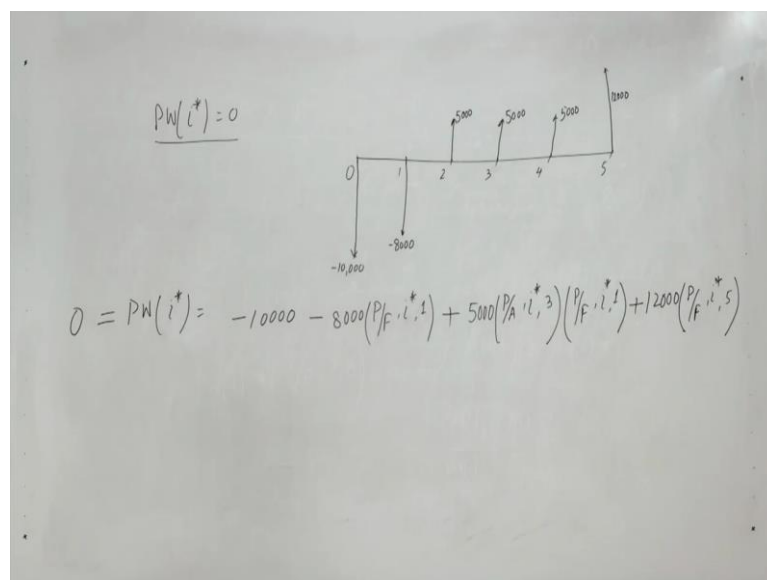 PW(i*)=0
5000 5000 5000 12000
0 1 2 3 4 5
-8000
-10,000
0 = PW(i*) = -10000 - 8000(P/F, i*, 1) + 5000(P/A, i*, 3)(P/F, i*, 1) + 12000(P/F, i*, 5)